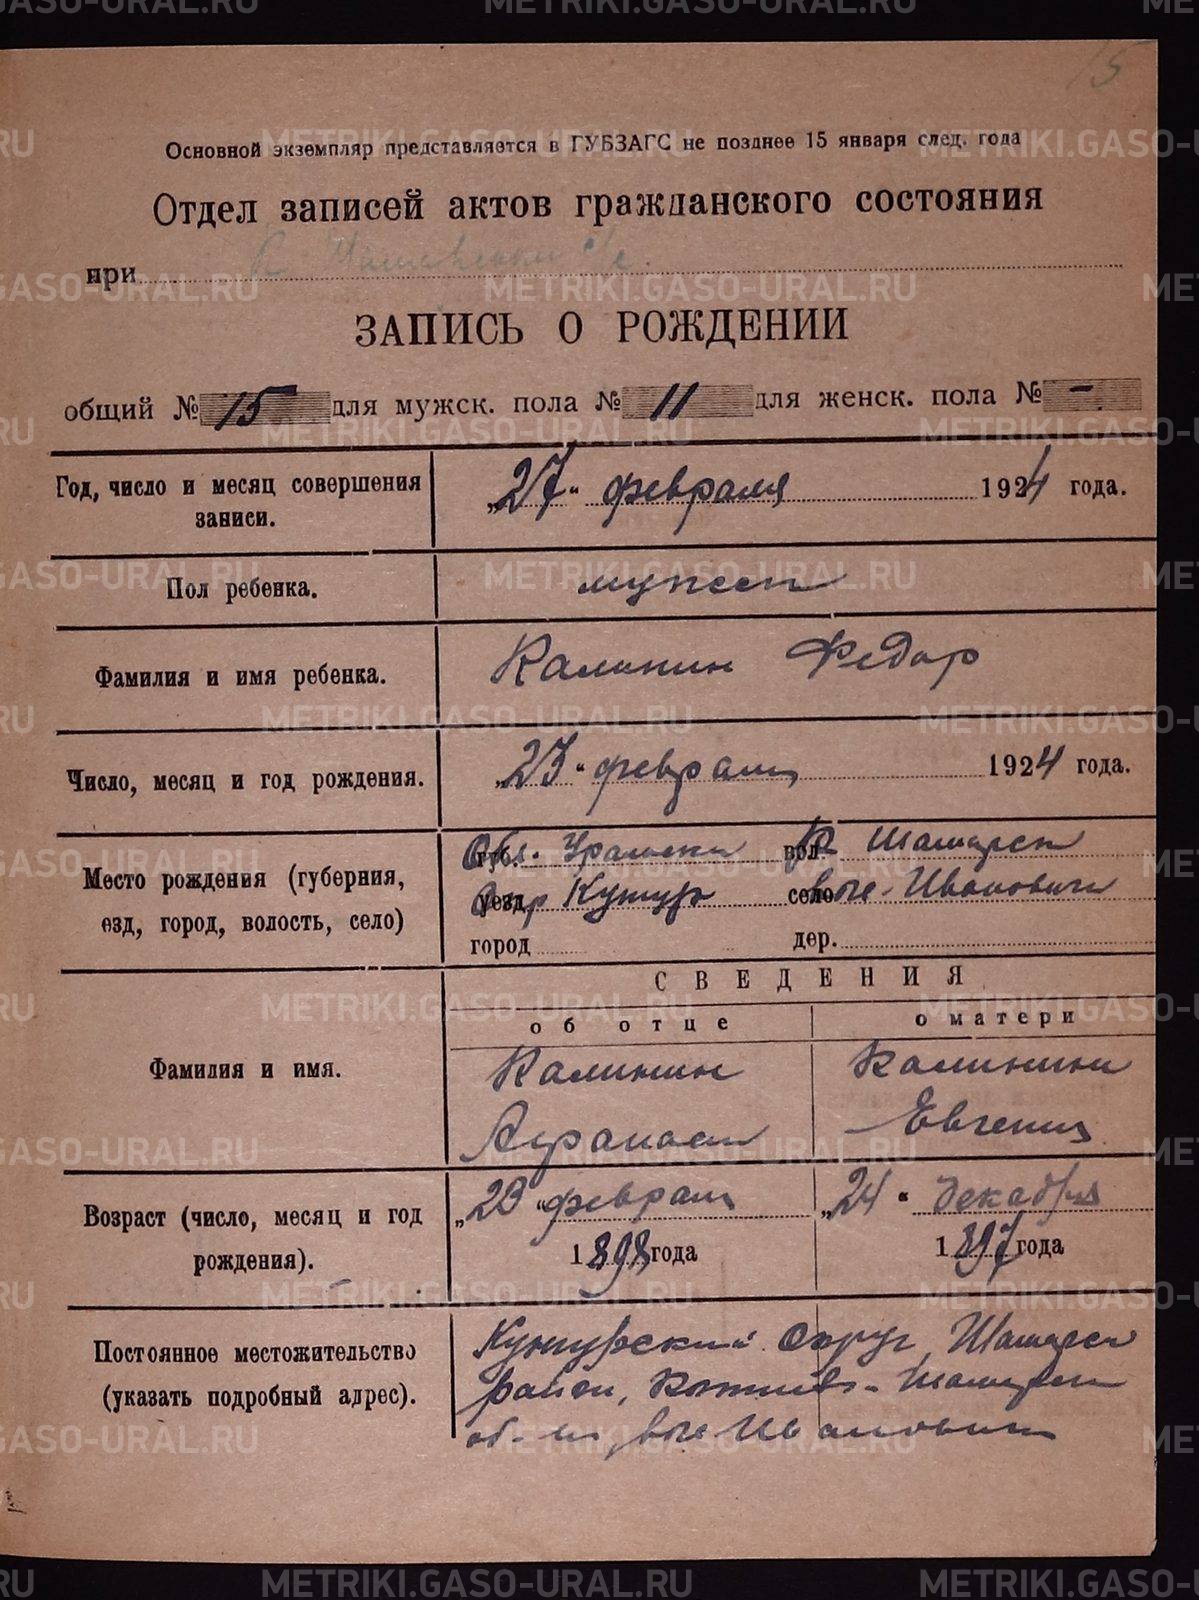 15
Основной экземпляр представляется в ГУБЗАГС не позднее 15 января след. года
Отдел записей актов гражданского состояния
при
ЗАПИСЬ О РОЖДЕНИИ
общий № 15 для мужск. пола № 11 для женск. пола № -
Год, число и месяц совершения
записи.
„27" февраля 1924 года.
Пол ребенка.
мужск
Фамилия и имя ребенка.
Калинин Федор
Число, месяц и год рождения.
„23" февраля 1924 года.
Место рождения (губерния,
езд, город, волость, село)
губ. Обл. Уральск вол. К Шамарск
уезд Окр Кунгур село выс. Ивановск
город дер.
СВЕДЕНИЯ
об отце
о матери
Фамилия и имя.
Калинин
Афанасий
Калинина
Евгения
Возраст (число, месяц и год
рождения).
февраля
1898 года
„24" декабря
1897 года
Постоянное местожительство
(указать подробный адрес).
Кунгурский Округ, Шамарск
район,
выс Ивановск
METRIKI.GASO-URAL.RU